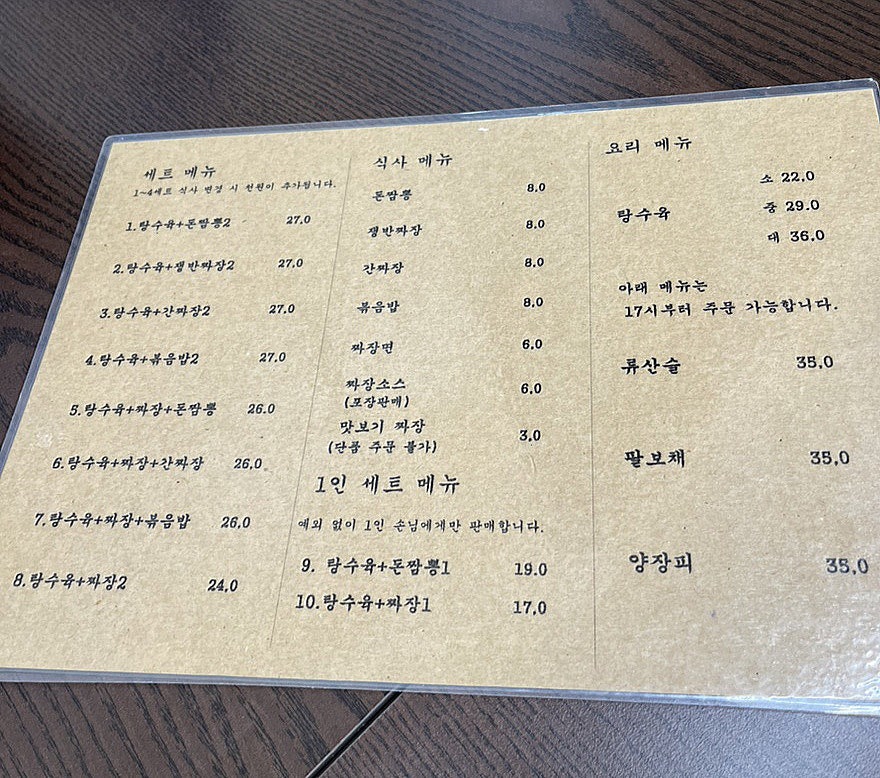 세트 메뉴
1~4세트 식사 변경 시 천원이 추가됩니다.
1.탕수육+돈짬뽕2 27.0
2.탕수육+쟁반짜장2 27.0
3.탕수육+간짜장2 27.0
4.탕수육+볶음밥2 27.0
5.탕수육+짜장+돈짬뽕 26.0
6.탕수육+짜장+간짜장 26.0
7.탕수육+짜장+볶음밥 26.0
8.탕수육+짜장2 24.0
식사 메뉴
돈짬뽕 8.0
쟁반짜장 8.0
간짜장 8.0
볶음밥 8.0
짜장면 6.0
짜장소스 6.0
(포장판매)
맛보기 짜장 3.0
(단품 주문 불가)
1인 세트 메뉴
예외 없이 1인 손님에게만 판매합니다.
9. 탕수육+돈짬뽕1 19.0
10.탕수육+짜장1 17.0
요리 메뉴
소 22.0
탕수육 중 29.0
대 36.0
아래 메뉴는
17시부터 주문 가능합니다.
류산슬 35.0
팔보채 35.0
양장피 35.0